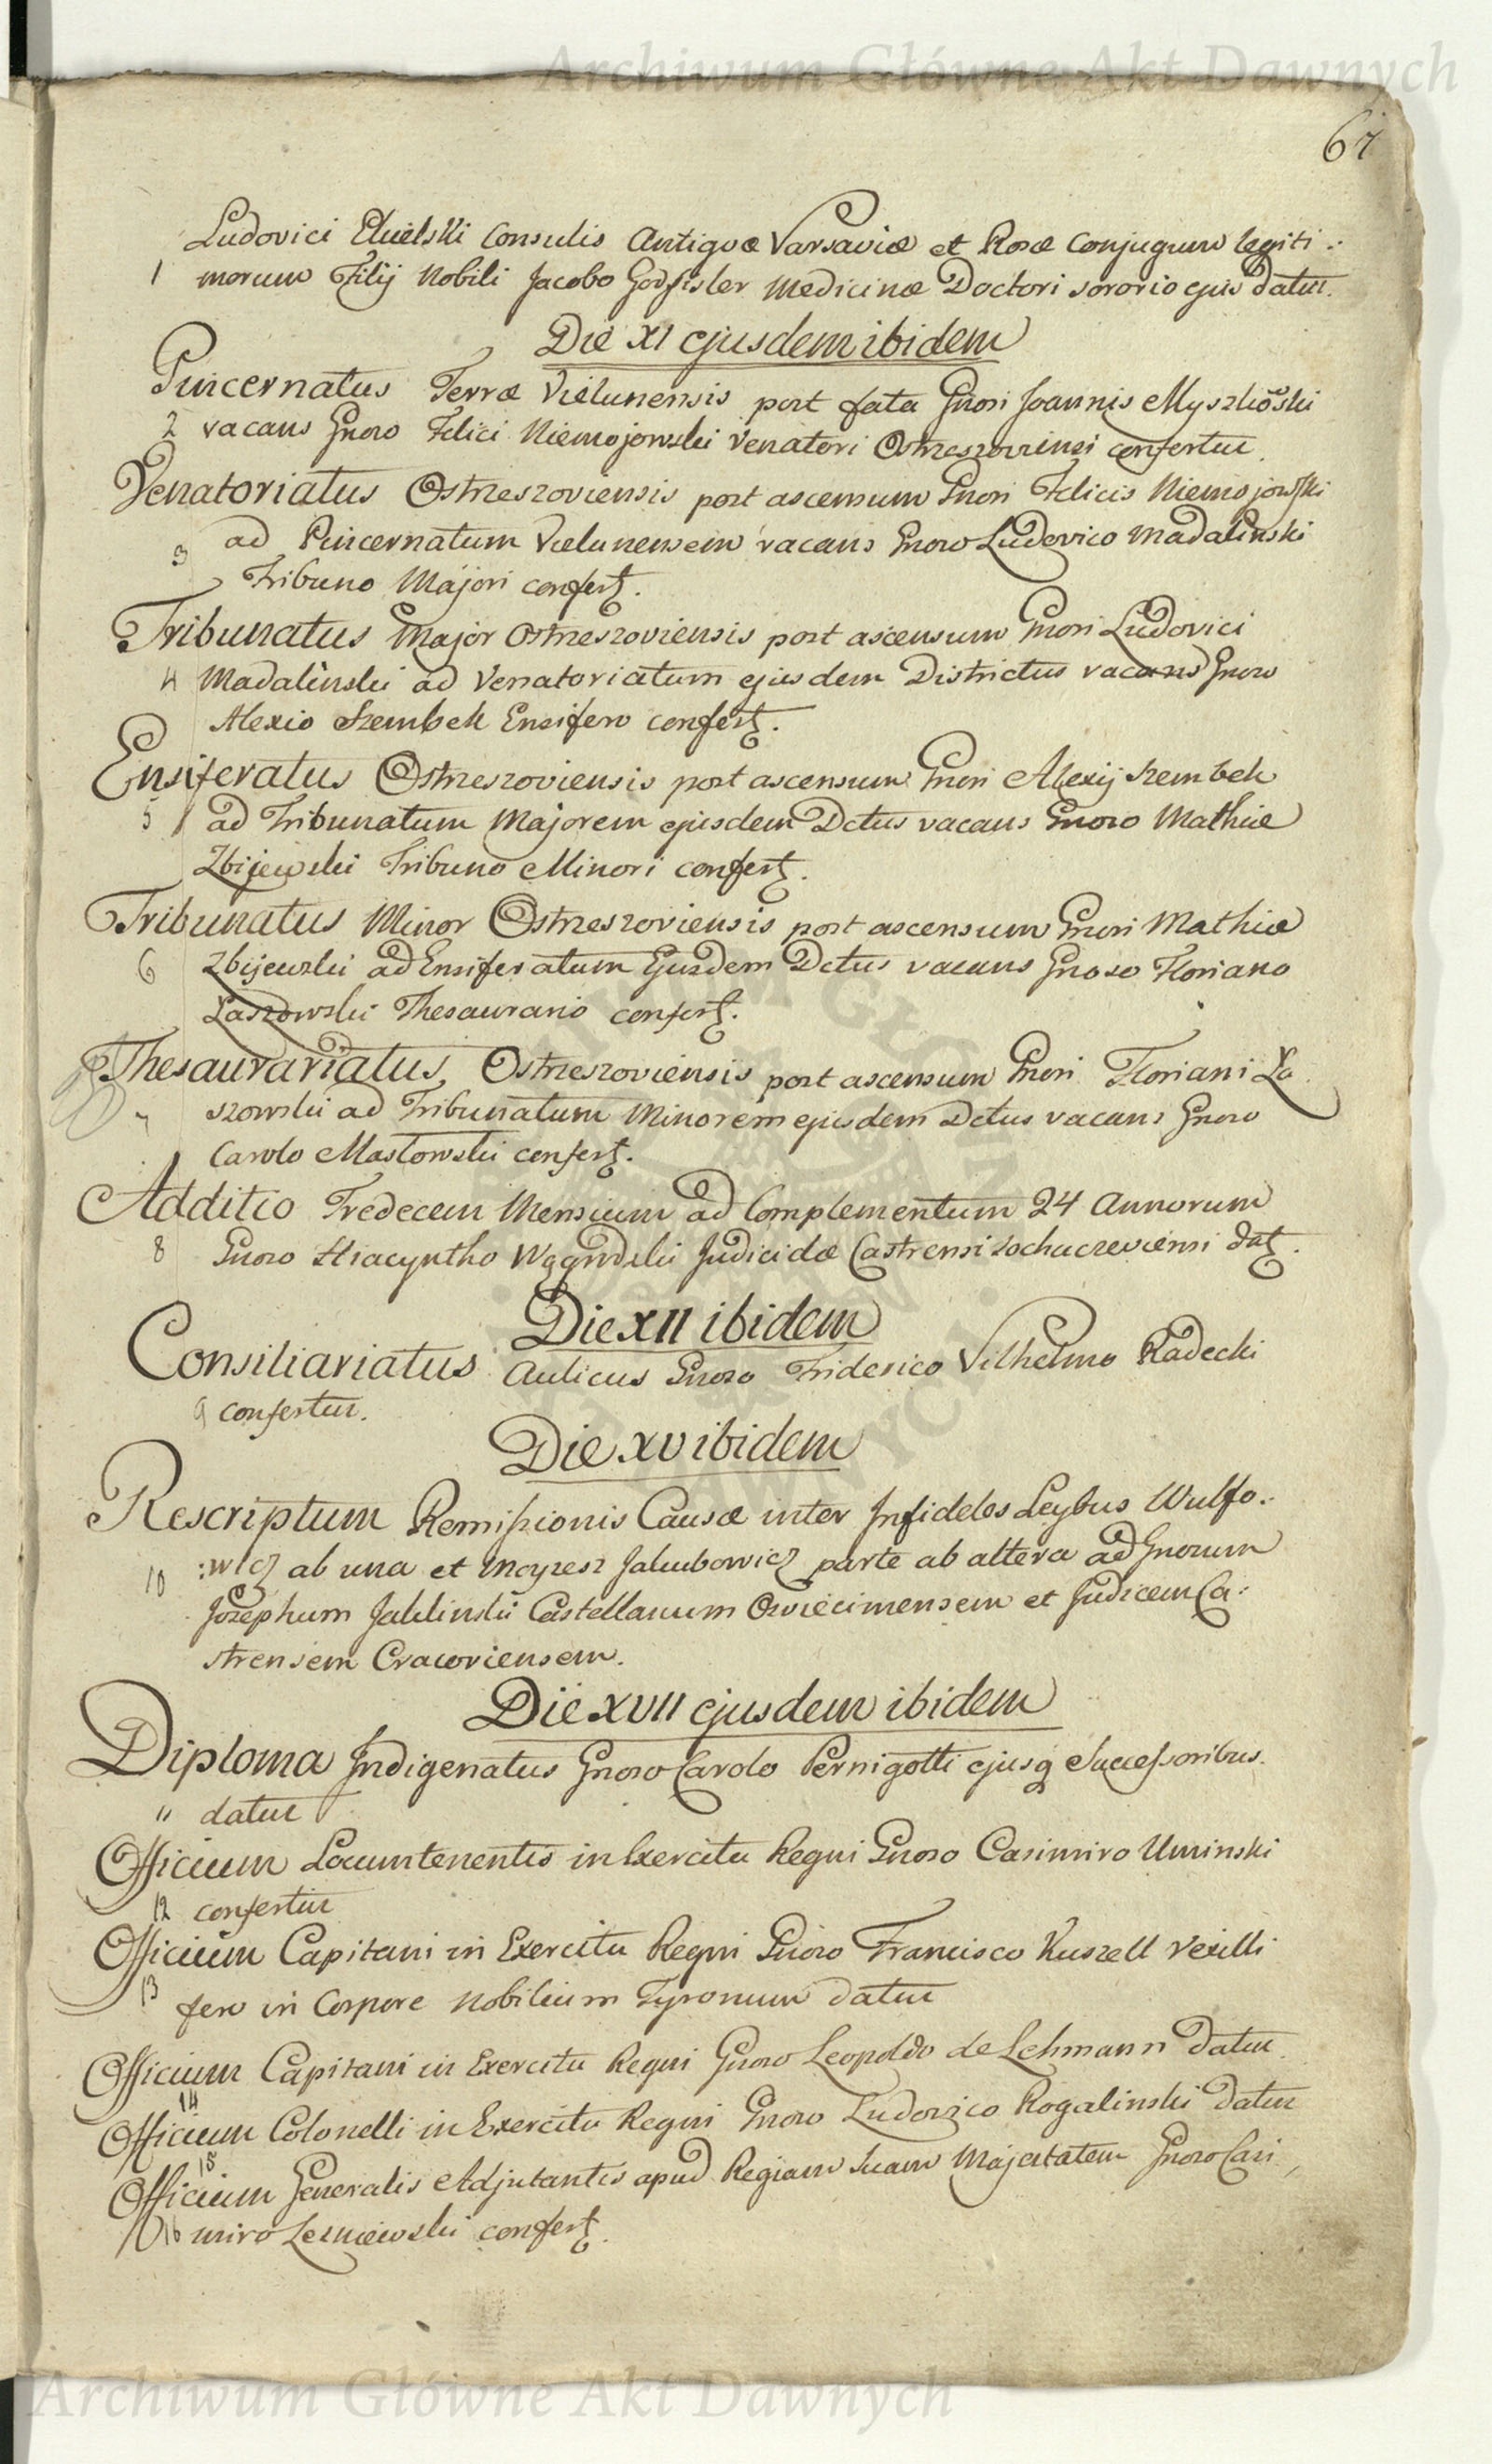 Archiwum Główne Akt Dawnych
67
Ludovici Elwelski Consulis Antiquæ Varsaviæ et Rosæ Conjugum legiti.:
1 morum Filij Nobili Jacobo Medicinæ Doctori sororio ejus datur.
Die XI ejusdem ibidem
Pincernatus Terræ Vielunensis post fata Gnosi Joannis Myszkõski
2 vacans Gnoso Felici Niemojowski Venatori Ostrzeszoviensi confertur.
Venatoriatus Ostrzeszoviensis post ascensum Gnosi Felicis Niemojowski
3 ad Pincernatum Vielunensem vacans Gnoso Ludovico Madalinski
Tribuno Majori confert.
Tribunatus Major Ostrzeszoviensis post ascensum Gnosi Ludovici
4 Madalinski ad Venatoriatum ejusdem Districtus vacans Gnoso
Alexio Szembek Ensifero confert.
Ensiferatus Ostrzeszoviensis post ascensum Gnosi Alexij Szembek
5 ad Tribunatum Majorem ejusdem Dctus vacans Gnoso Mathiæ
Zbijewski Tribuno Minori confert.
Tribunatus Minor Ostrzeszoviensis post ascensum Gnosi Mathiæ
6 Zbijewski ad Ensiferatum Ejusdem Dctus vacans Gnoso Floriano
Laszowski Thesaurario confert.
Thesaurariatus Ostrzeszoviensis post ascensum Gnosi Floriani La
7 szowski ad Tribunatum Minorem ejusdem Dctus vacans Gnoso
Carolo Maslowski confert.
Additio Tredecem Mensium ad Complementum 24 Annorum
8 Gnoso Hiacyntho Judicidæ Castrensi Sochaczeviensi dat.
Die XII ibidem
Consiliariatus Aulicus Gnoso Friderico Vilhelmo Radecki
9 confertur.
Die XV ibidem
Rescriptum Remissionis Causæ inter Infideles Leybus Wulfo.:
10 :wicz ab una et Moyzesz Jakubowicz parte ab altera ad Gnosum
Josephum Jaklinski Castellanum Osviecimensem et Judicem Ca:
strensem Cracoviensem.
Die XVII ejusdem ibidem
Diploma Indigenatus Gnoso Carolo Pernigotti ejusq Successoribus.
11 datur
Officium Locumtenentis in Exercitu Regni Gnoso Casimiro Uminski
12 confertur
Officium Capitani in Exercitu Regni Gnoso Francisco Kuszell Vexilli
13 fero in Corpore Nobilium Tyronum datur
Officium Capitani in Exercitu Regni Gnoso Leopoldo de Lehmann datur.
14
Officium Colonelli in Exercitu Regni Gnoso Ludovico Rogalinski datur
15
Officium Generalis Adjutantis apud Regiam Suam Majestatem Gnoso Casi
16 miro Lesniewski confert.
Archiwum Główne Akt Dawnych